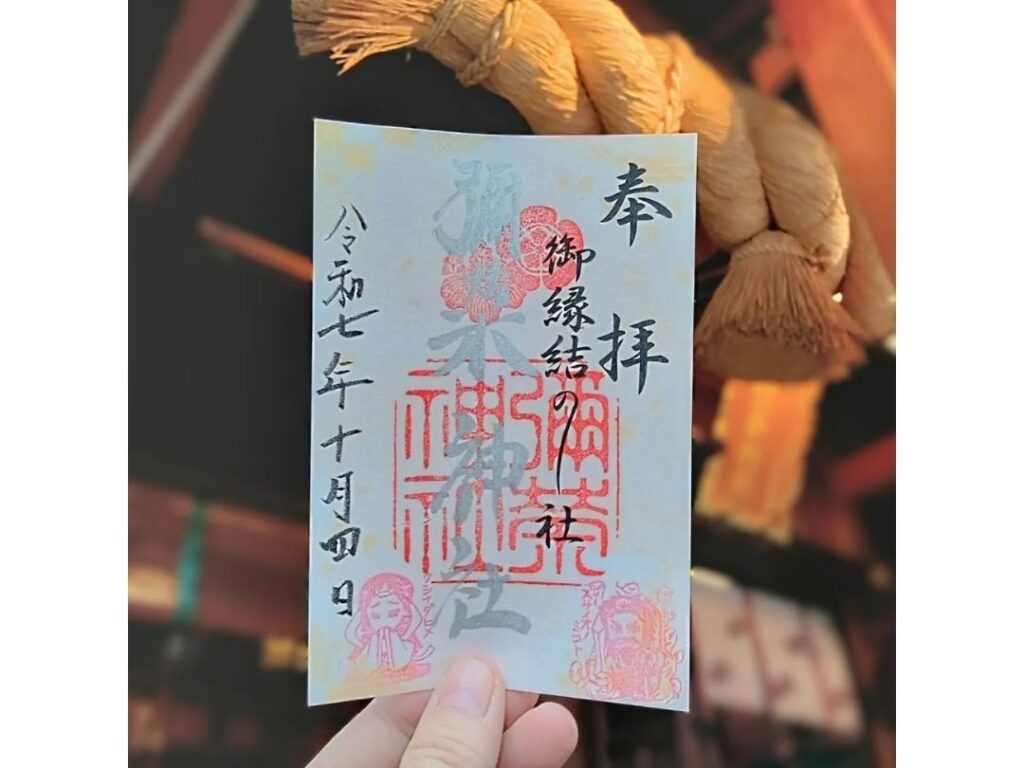 奉拝
御縁結の社
彌榮神社
彌榮神社
令和七年十月四日
スサノオノ
ミコト
クシナダヒメ